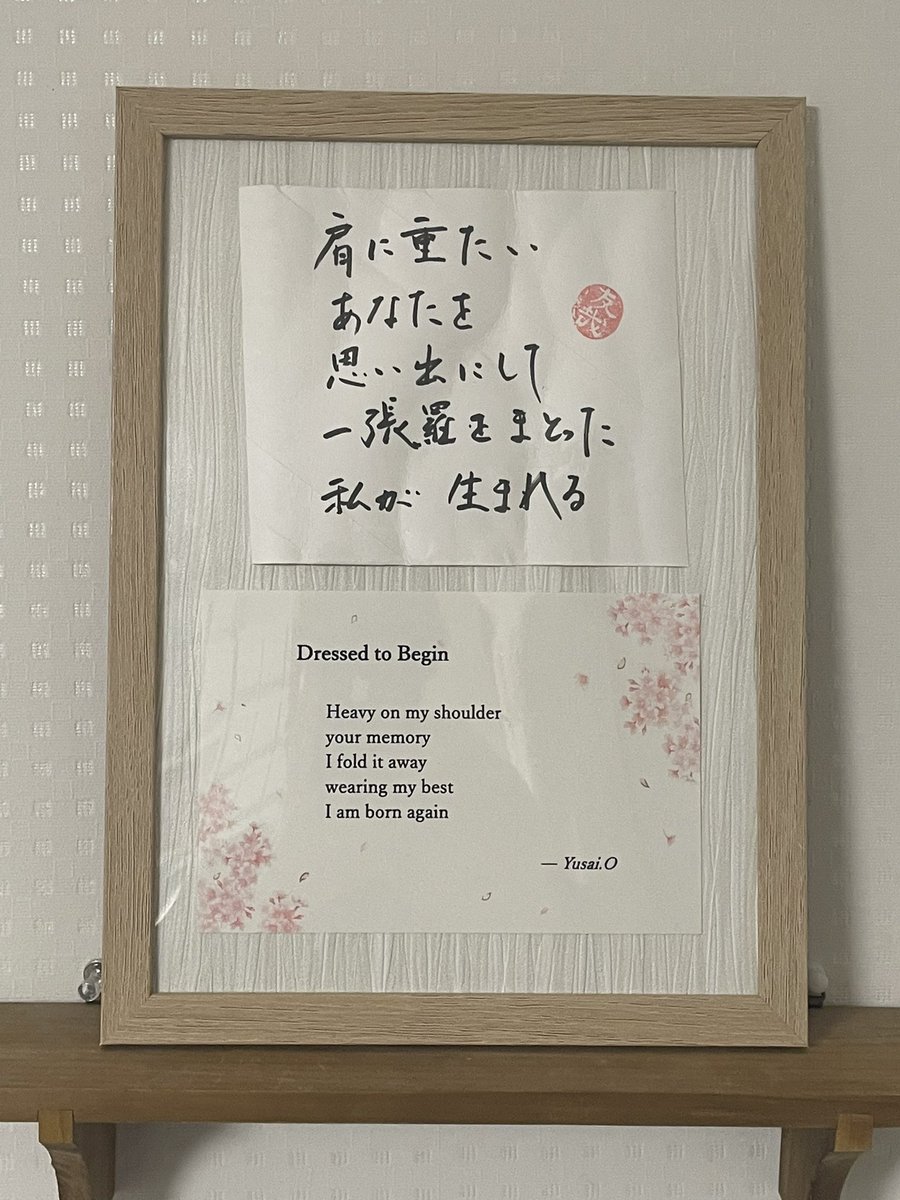 肩に重たい
あなたを
思い出にして
一張羅をまとった
私が 生まれる
友哉
Dressed to Begin
Heavy on my shoulder
your memory
I fold it away
wearing my best
I am born again
— Yusai.O